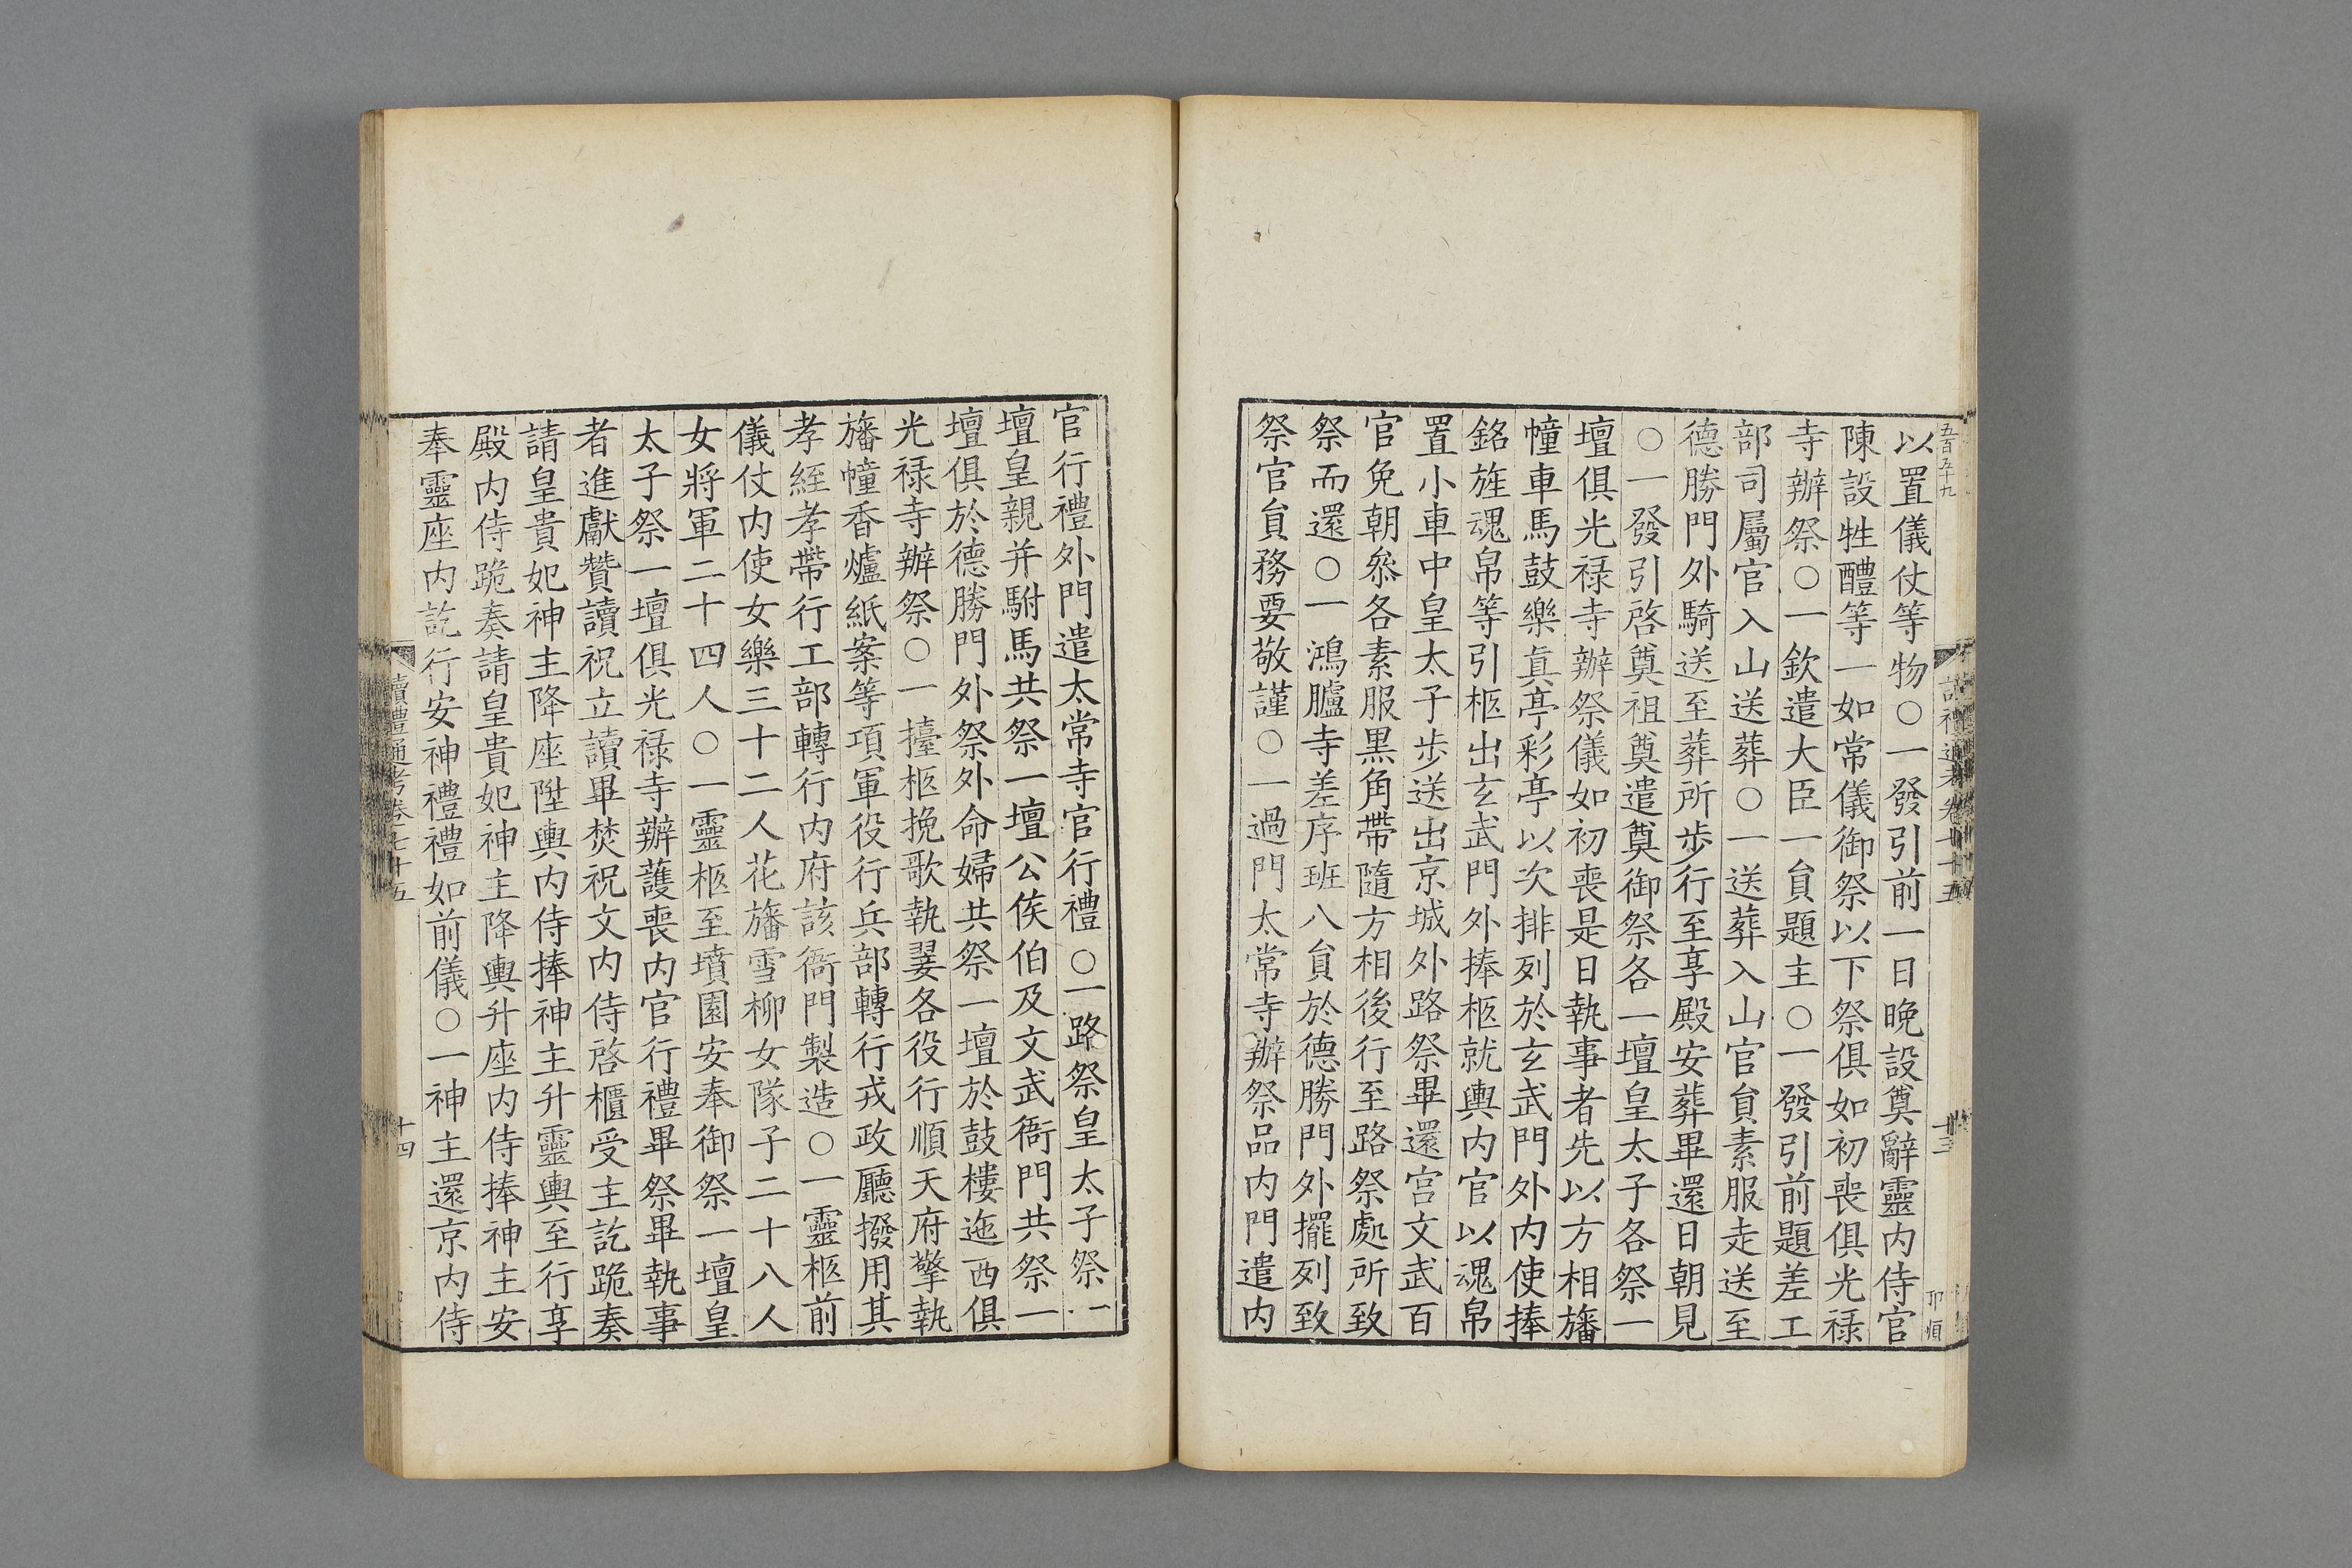 五百五十九
以置儀仗等物○一發引前一日晚設奠辭靈内侍官
陳設牲醴等一如常儀御祭以下祭俱如初喪俱光禄
寺辦祭○一欽遣大臣一員題主○一發引前題差工
部司屬官入山送葬○一送葬入山官員素服走送至
德勝門外騎送至葬所步行至享殿安葬畢還日朝見
○一發引啓奠祖奠遣奠御祭各一壇皇太子各祭一
壇俱光禄寺辦祭儀如初喪是日執事者先以方相旛
幢車馬鼓樂真亭彩亭以次排列於玄武門外内使捧
銘旌魂帛等引柩出玄武門外捧柩就輿内官以魂帛
置小車中皇太子步送出京城外路祭畢還宫文武百
官免朝叅各素服黒角帶隨方相後行至路祭處所致
祭而還○一鴻臚寺差序班八員於德勝門外擺列致
祭官員務要敬謹○一過門太常寺辦祭品内門遣内
官行禮外門遣太常寺官行禮○一路祭皇太子祭一
壇皇親并駙馬共祭一壇公侯伯及文武衙門共祭一
壇俱於德勝門外祭外命婦共祭一壇於鼓樓迤西俱
光禄寺辦祭○一擡柩挽歌執翣各役行順天府擎執
旛幢香爐紙案等項軍役行兵部轉行戎政廳撥用其
孝絰孝帶行工部轉行内府該衙門製造○一靈柩前
儀仗内使女樂三十二人花旛雪柳女隊子二十八人
女將軍二十四人○一靈柩至墳園安奉御祭一壇皇
太子祭一壇俱光禄寺辦護喪内官行禮畢祭畢執事
者進獻贊讀祝立讀畢焚祝文内侍啓櫃受主訖跪奏
請皇貴妃神主降座陞輿内侍捧神主升靈輿至行享
殿内侍跪奏請皇貴妃神主降輿升座内侍捧神主安
奉靈座内訖行安神禮禮如前儀○一神主還京内侍
讀禮通考卷七十五
十四